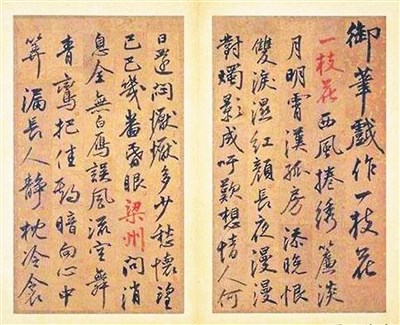 御筆戲作一枝花
一枝花西風捲綉簾淡
月明霄漢孤房添晚恨
雙淚濕紅顏長夜漫漫
對燭影成吁歎想情人何
日還悶懨懨多少愁懷望
巴巴幾番眼梁州問消
息全無白雁誤風流空舞
青鸞把佳期暗向心中
筭漏長人静枕冷衾